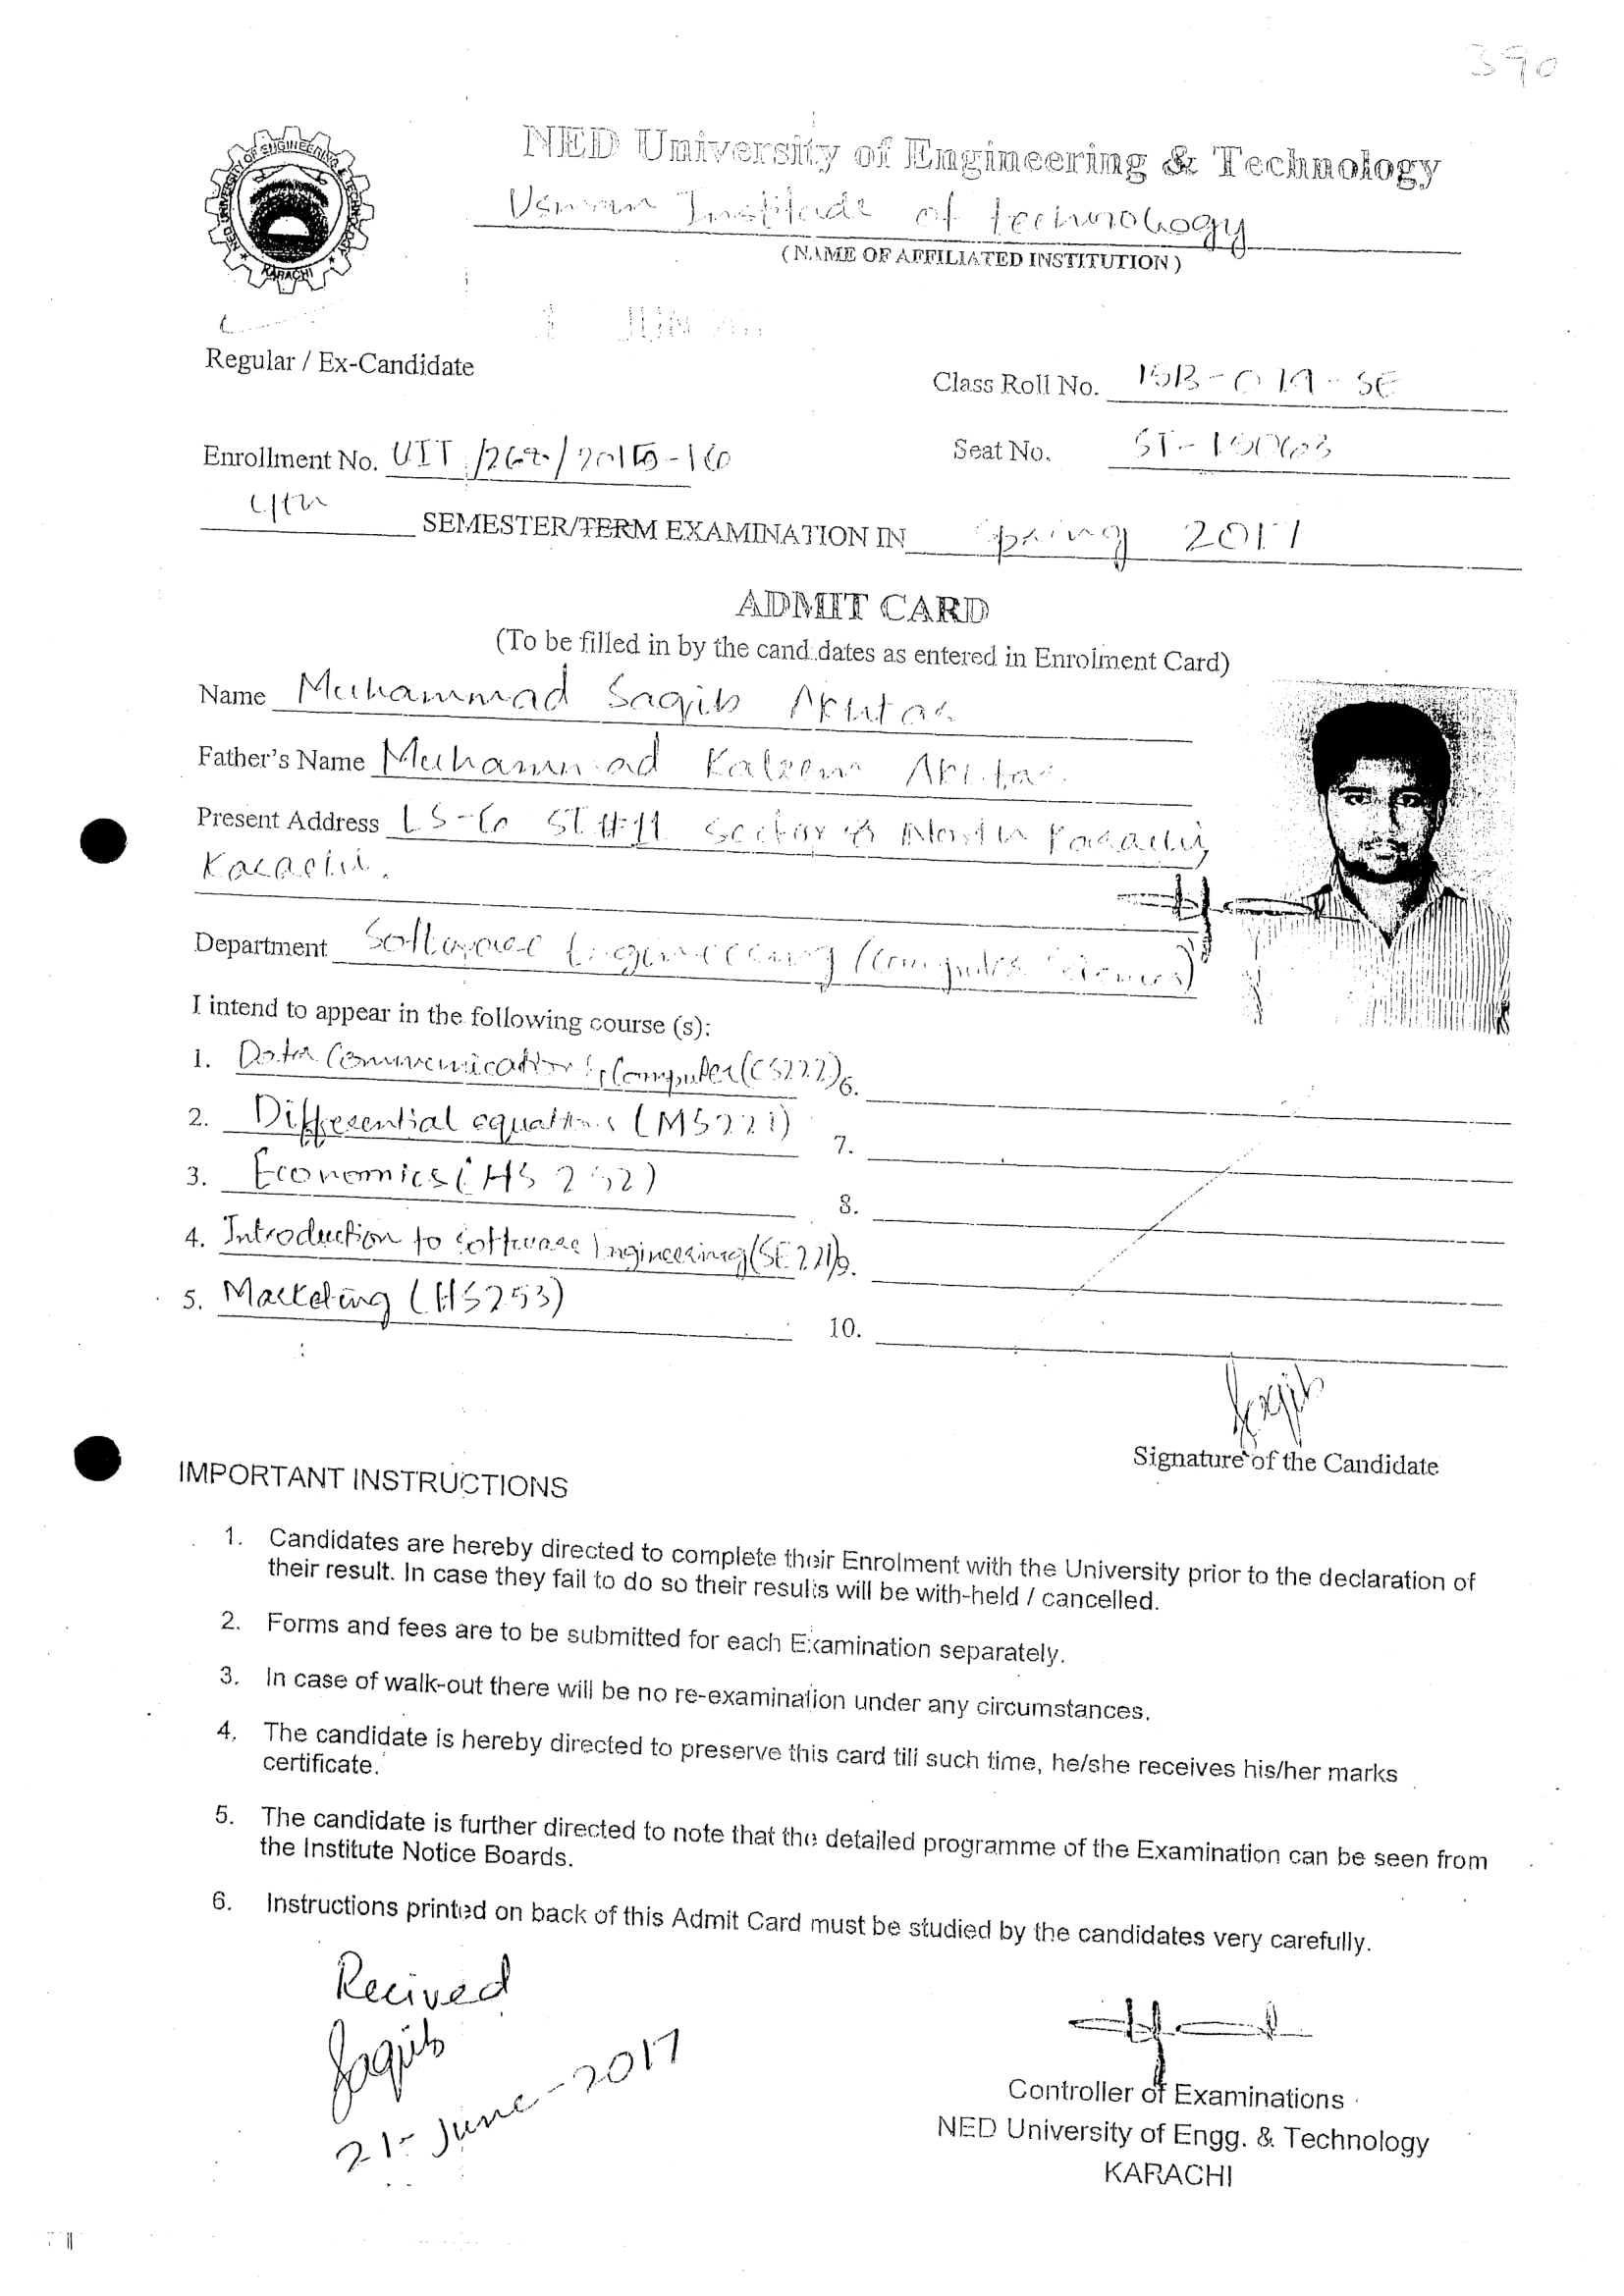 390
NED University of Engineering & Technology
Usman Institude of technology
(NAME OF AFFILIATED INSTITUTION)
NED UNIVERSITY OF ENGINEERING & TECHNOLOGY
KARACHI
JUN
Regular / Ex-Candidate
Class Roll No. 15B-019-SE
Enrollment No. UIT /267/2015-16
Seat No. ST-15063
4th SEMESTER/TERM EXAMINATION IN Spring 2017
ADMIT CARD
(To be filled in by the candidates as entered in Enrolment Card)
Name Muhammad Saqib Akhtar
Father's Name Muhammad Kaleem Akhtar
Present Address LS-6 ST#11 Sector North Karachi,
Karachi.
Department Software Engineering (Computer Sciences)
I intend to appear in the following course (s):
1. Data Communication & Computer (CS222)
6.
2. Differential equations (MS221)
7.
3. Economics (HS 252)
8.
4. Introduction to software Engineering (SE221)
9.
5. Marketing (HS253)
10.
Saqib
Signature of the Candidate
IMPORTANT INSTRUCTIONS
1. Candidates are hereby directed to complete their Enrolment with the University prior to the declaration of
their result. In case they fail to do so their results will be with-held / cancelled.
2. Forms and fees are to be submitted for each Examination separately.
3. In case of walk-out there will be no re-examination under any circumstances.
4. The candidate is hereby directed to preserve this card till such time, he/she receives his/her marks
certificate.
5. The candidate is further directed to note that the detailed programme of the Examination can be seen from
the Institute Notice Boards.
6. Instructions printed on back of this Admit Card must be studied by the candidates very carefully.
Recived
Saqib
21-June-2017
Controller of Examinations
NED University of Engg. & Technology
KARACHI